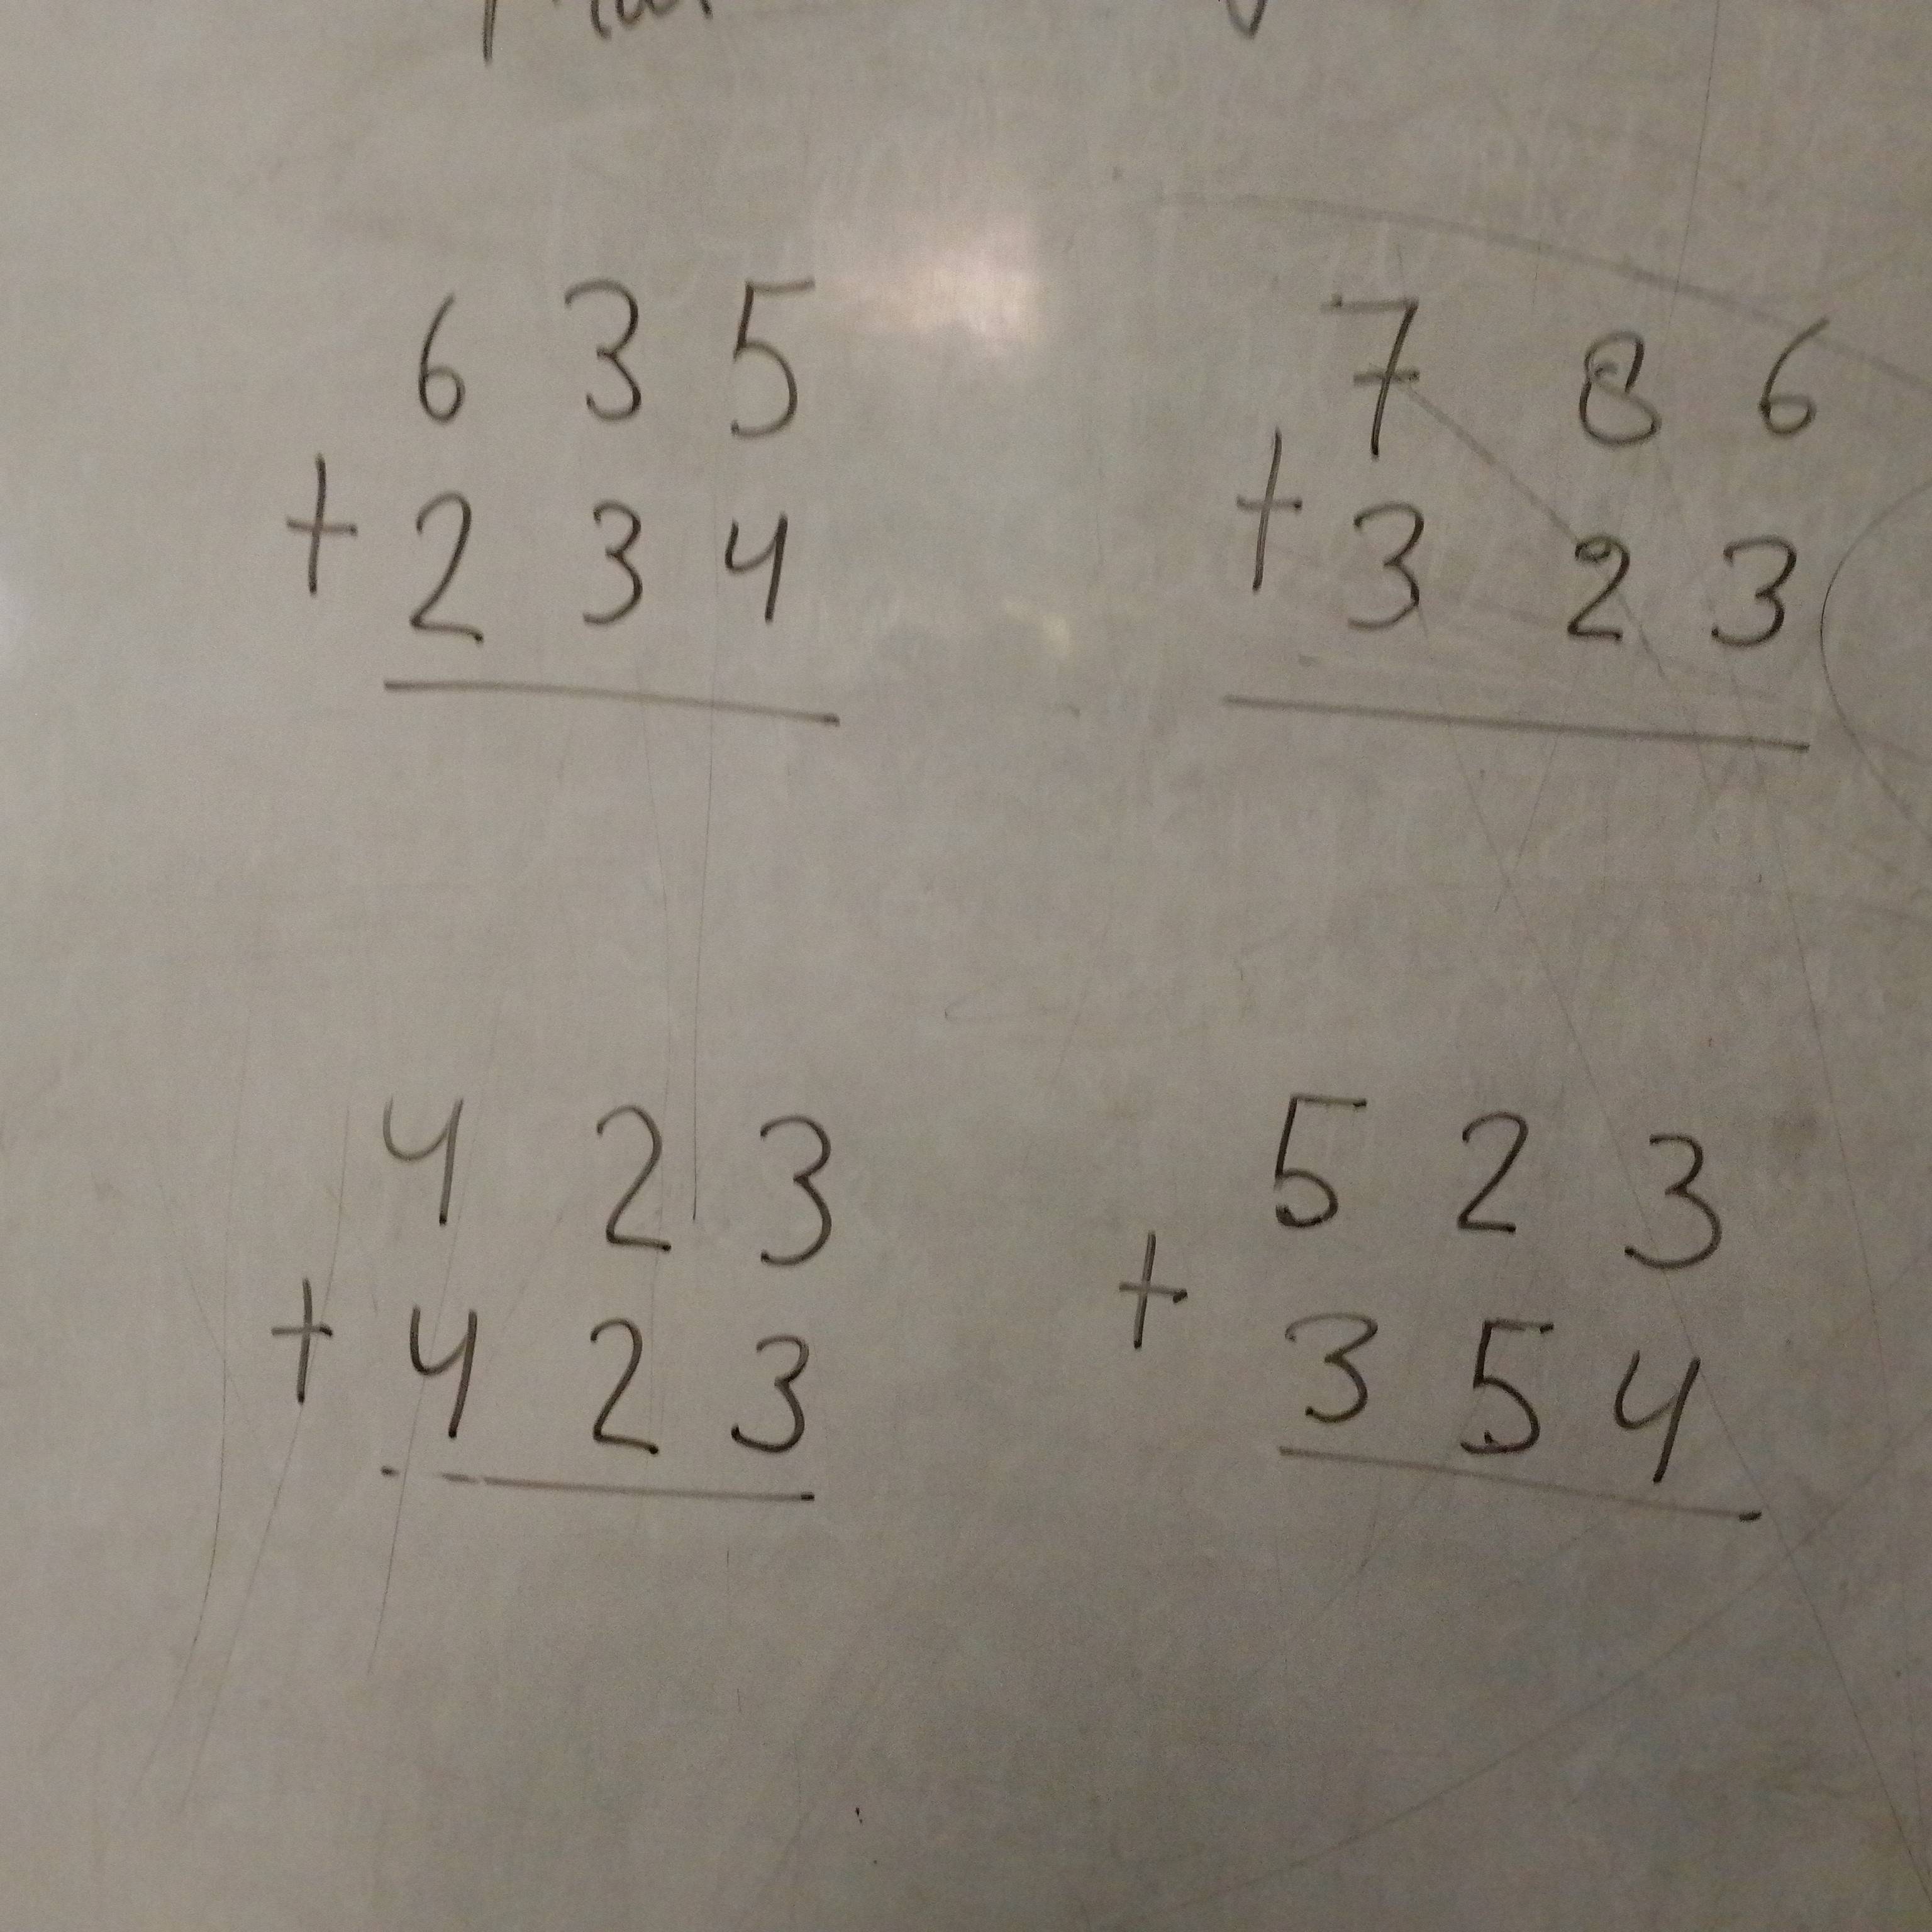 6 3 5
+ 2 3 4
7 8 6
+ 3 2 3
4 2 3
+ 4 2 3
5 2 3
+ 3 5 4